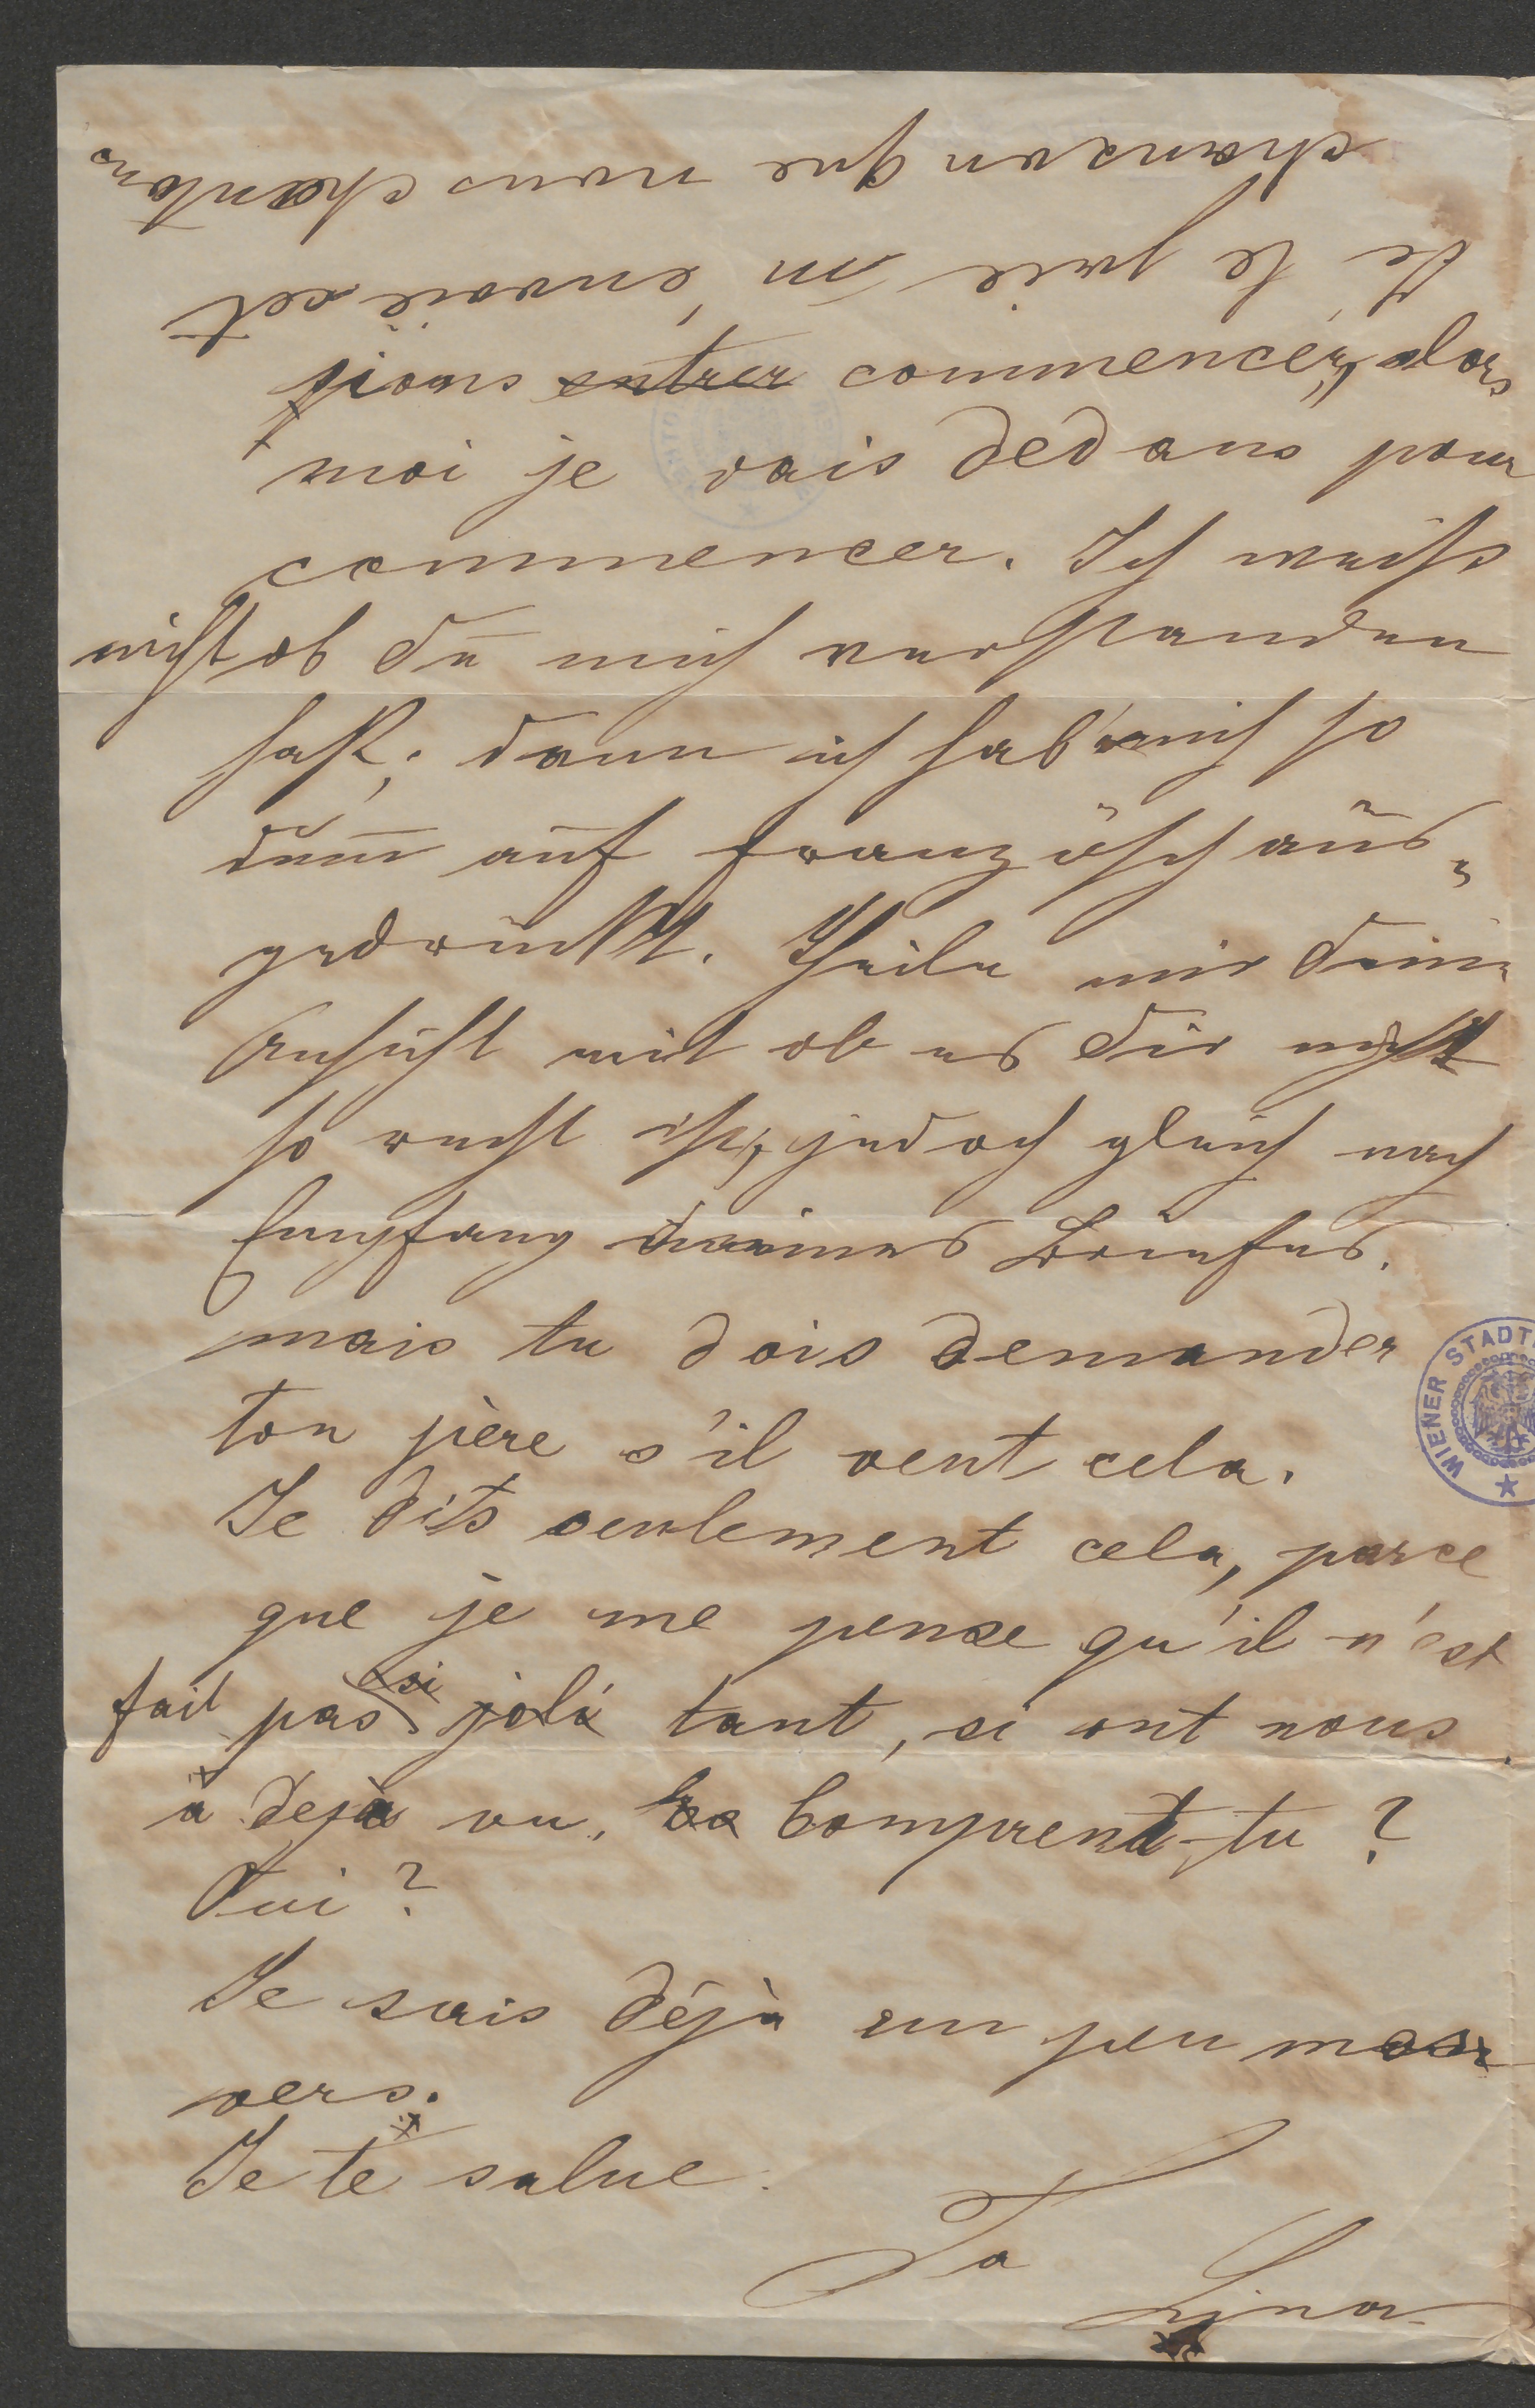 Je te prie m'envoie cet
chanson que nous chantons
fions entrer commencer, alors
moi je vais dedans pour
commencer. Ich weiß
nicht ob Du mich verstanden
hast; denn ich hab mich so
dum̅ auf französch aus-
gedrückt. Theile mir Deine
Ansicht mit ob es Dir nicht
so recht ist, jedoch gleich nach
Empfang meines Briefes.
mais tu dois demander
ton père s'il veut cela.
Je dits seulement cela, parce
que je me pense qu'il n'est
fait pas si joli tant, si ont nous
a deja vu. Comprend-tu ?
Oui ?
Je sais déjà un peu mon
vers.
Je te salue.
Ta
Lina
WIENER STADT